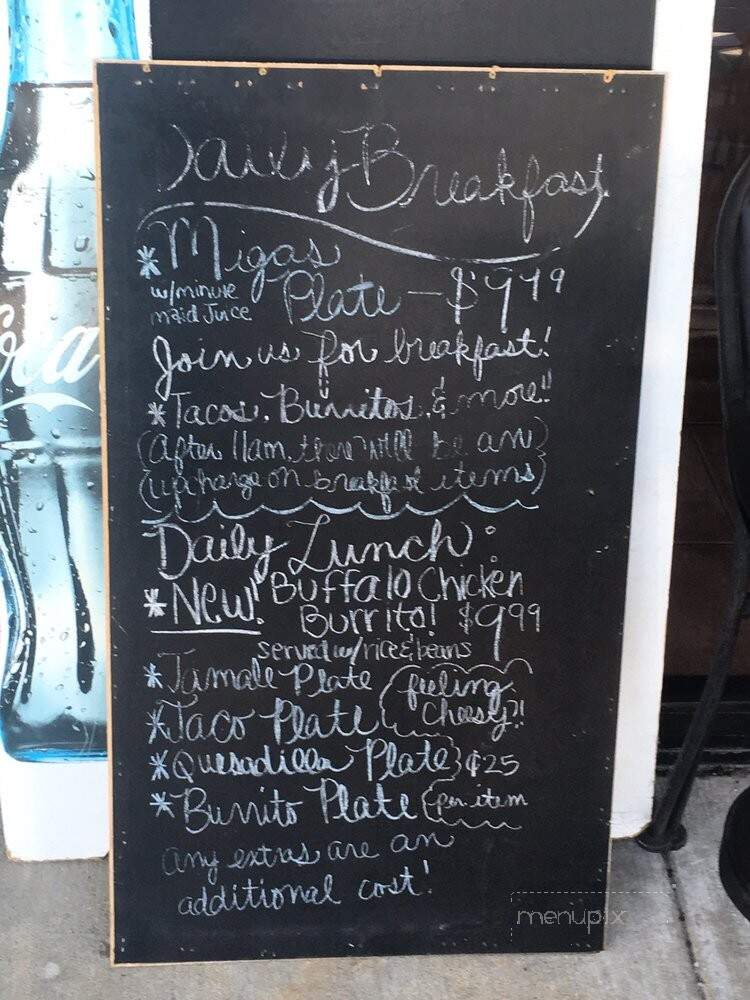 Daily Breakfast
* Migas
w/minute maid Juice
Plate - $9.99
Join us for breakfast!
* Tacos, Burritos, & more!!
(After 11am. there will be an
upcharge on breakfast items)
Daily Lunch:
* New! Buffalo Chicken
Burrito! $9.99
served w/rice & beans
* Tamale Plate
* Taco Plate
feeling
Cheesy?!
* Quesadilla Plate
¢25
* Burrito Plate
per item
any extras are an
additional cost!
menupix